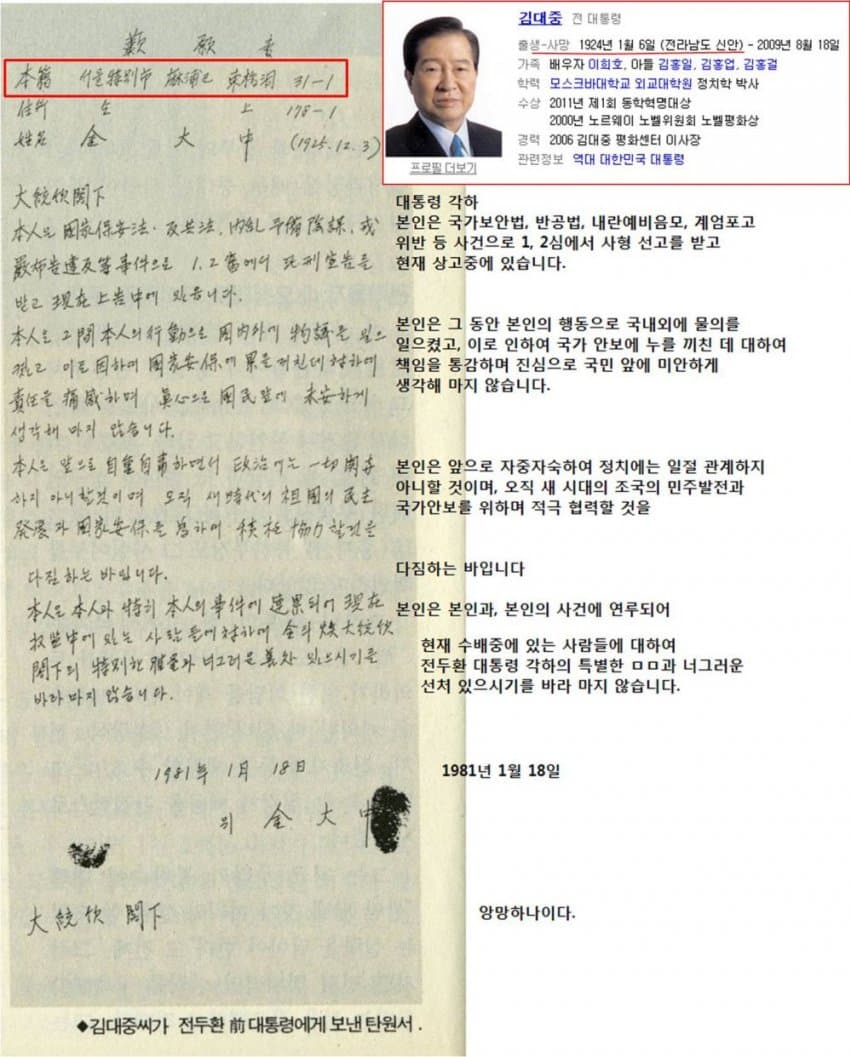 歎願書
本籍 서울特別市 麻浦區 東橋洞 31-1
住所 仝 上 178-1
姓名 金 大 中 (1925.12.3)
大統領閣下
本人은 國家保安法·反共法, 內亂予備陰謀, 戒
嚴布告違反等事件으로 1.2審에서 死刑宣告를
받고 現在 上告中에 있읍니다.
本人은 그間 本人의 行動으로 國內外에 物議를 일으
켰고 이로 因하여 國家安保에 累를 끼친데 對하여
責任을 痛感하며 眞心으로 國民앞에 未安하게
생각해 마지 않습니다.
本人은 앞으로 自重自肅하면서 政治에는 一切 関与
하지 아니할것이며 오직 새時代의 祖國의 民主
發展과 國家安保를 爲하여 積極 協力할것을
다짐하는 바입니다.
本人은 本人과 特히 本人의 事件에 連累되어 現在
受監中에 있는 사람들에 對하여 全斗煥大統領
閣下의 特別한 配慮와 너그러운 善処 있으시기를
바라마지 않습니다.
1981年 1月 18日
위 金 大 中
大統領 閣下
◆김대중씨가 전두환 前대통령에게 보낸 탄원서.
김대중 전 대통령
출생-사망 1924년 1월 6일 (전라남도 신안) - 2009년 8월 18일
가족 배우자 이희호, 아들 김홍일, 김홍업, 김홍걸
학력 모스크바대학교 외교대학원 정치학 박사
수상 2011년 제1회 동학혁명대상
2000년 노르웨이 노벨위원회 노벨평화상
경력 2006 김대중 평화센터 이사장
관련정보 역대 대한민국 대통령
프로필 더보기
대통령 각하
본인은 국가보안법, 반공법, 내란예비음모, 계엄포고
위반 등 사건으로 1, 2심에서 사형 선고를 받고
현재 상고중에 있습니다.
본인은 그 동안 본인의 행동으로 국내외에 물의를
일으켰고, 이로 인하여 국가 안보에 누를 끼친 데 대하여
책임을 통감하며 진심으로 국민 앞에 미안하게
생각해 마지 않습니다.
본인은 앞으로 자중자숙하여 정치에는 일절 관계하지
아니할 것이며, 오직 새 시대의 조국의 민주발전과
국가안보를 위하며 적극 협력할 것을
다짐하는 바입니다
본인은 본인과, 본인의 사건에 연루되어
현재 수배중에 있는 사람들에 대하여
전두환 대통령 각하의 특별한 ㅁㅁ과 너그러운
선처 있으시기를 바라 마지 않습니다.
1981년 1월 18일
앙망하나이다.